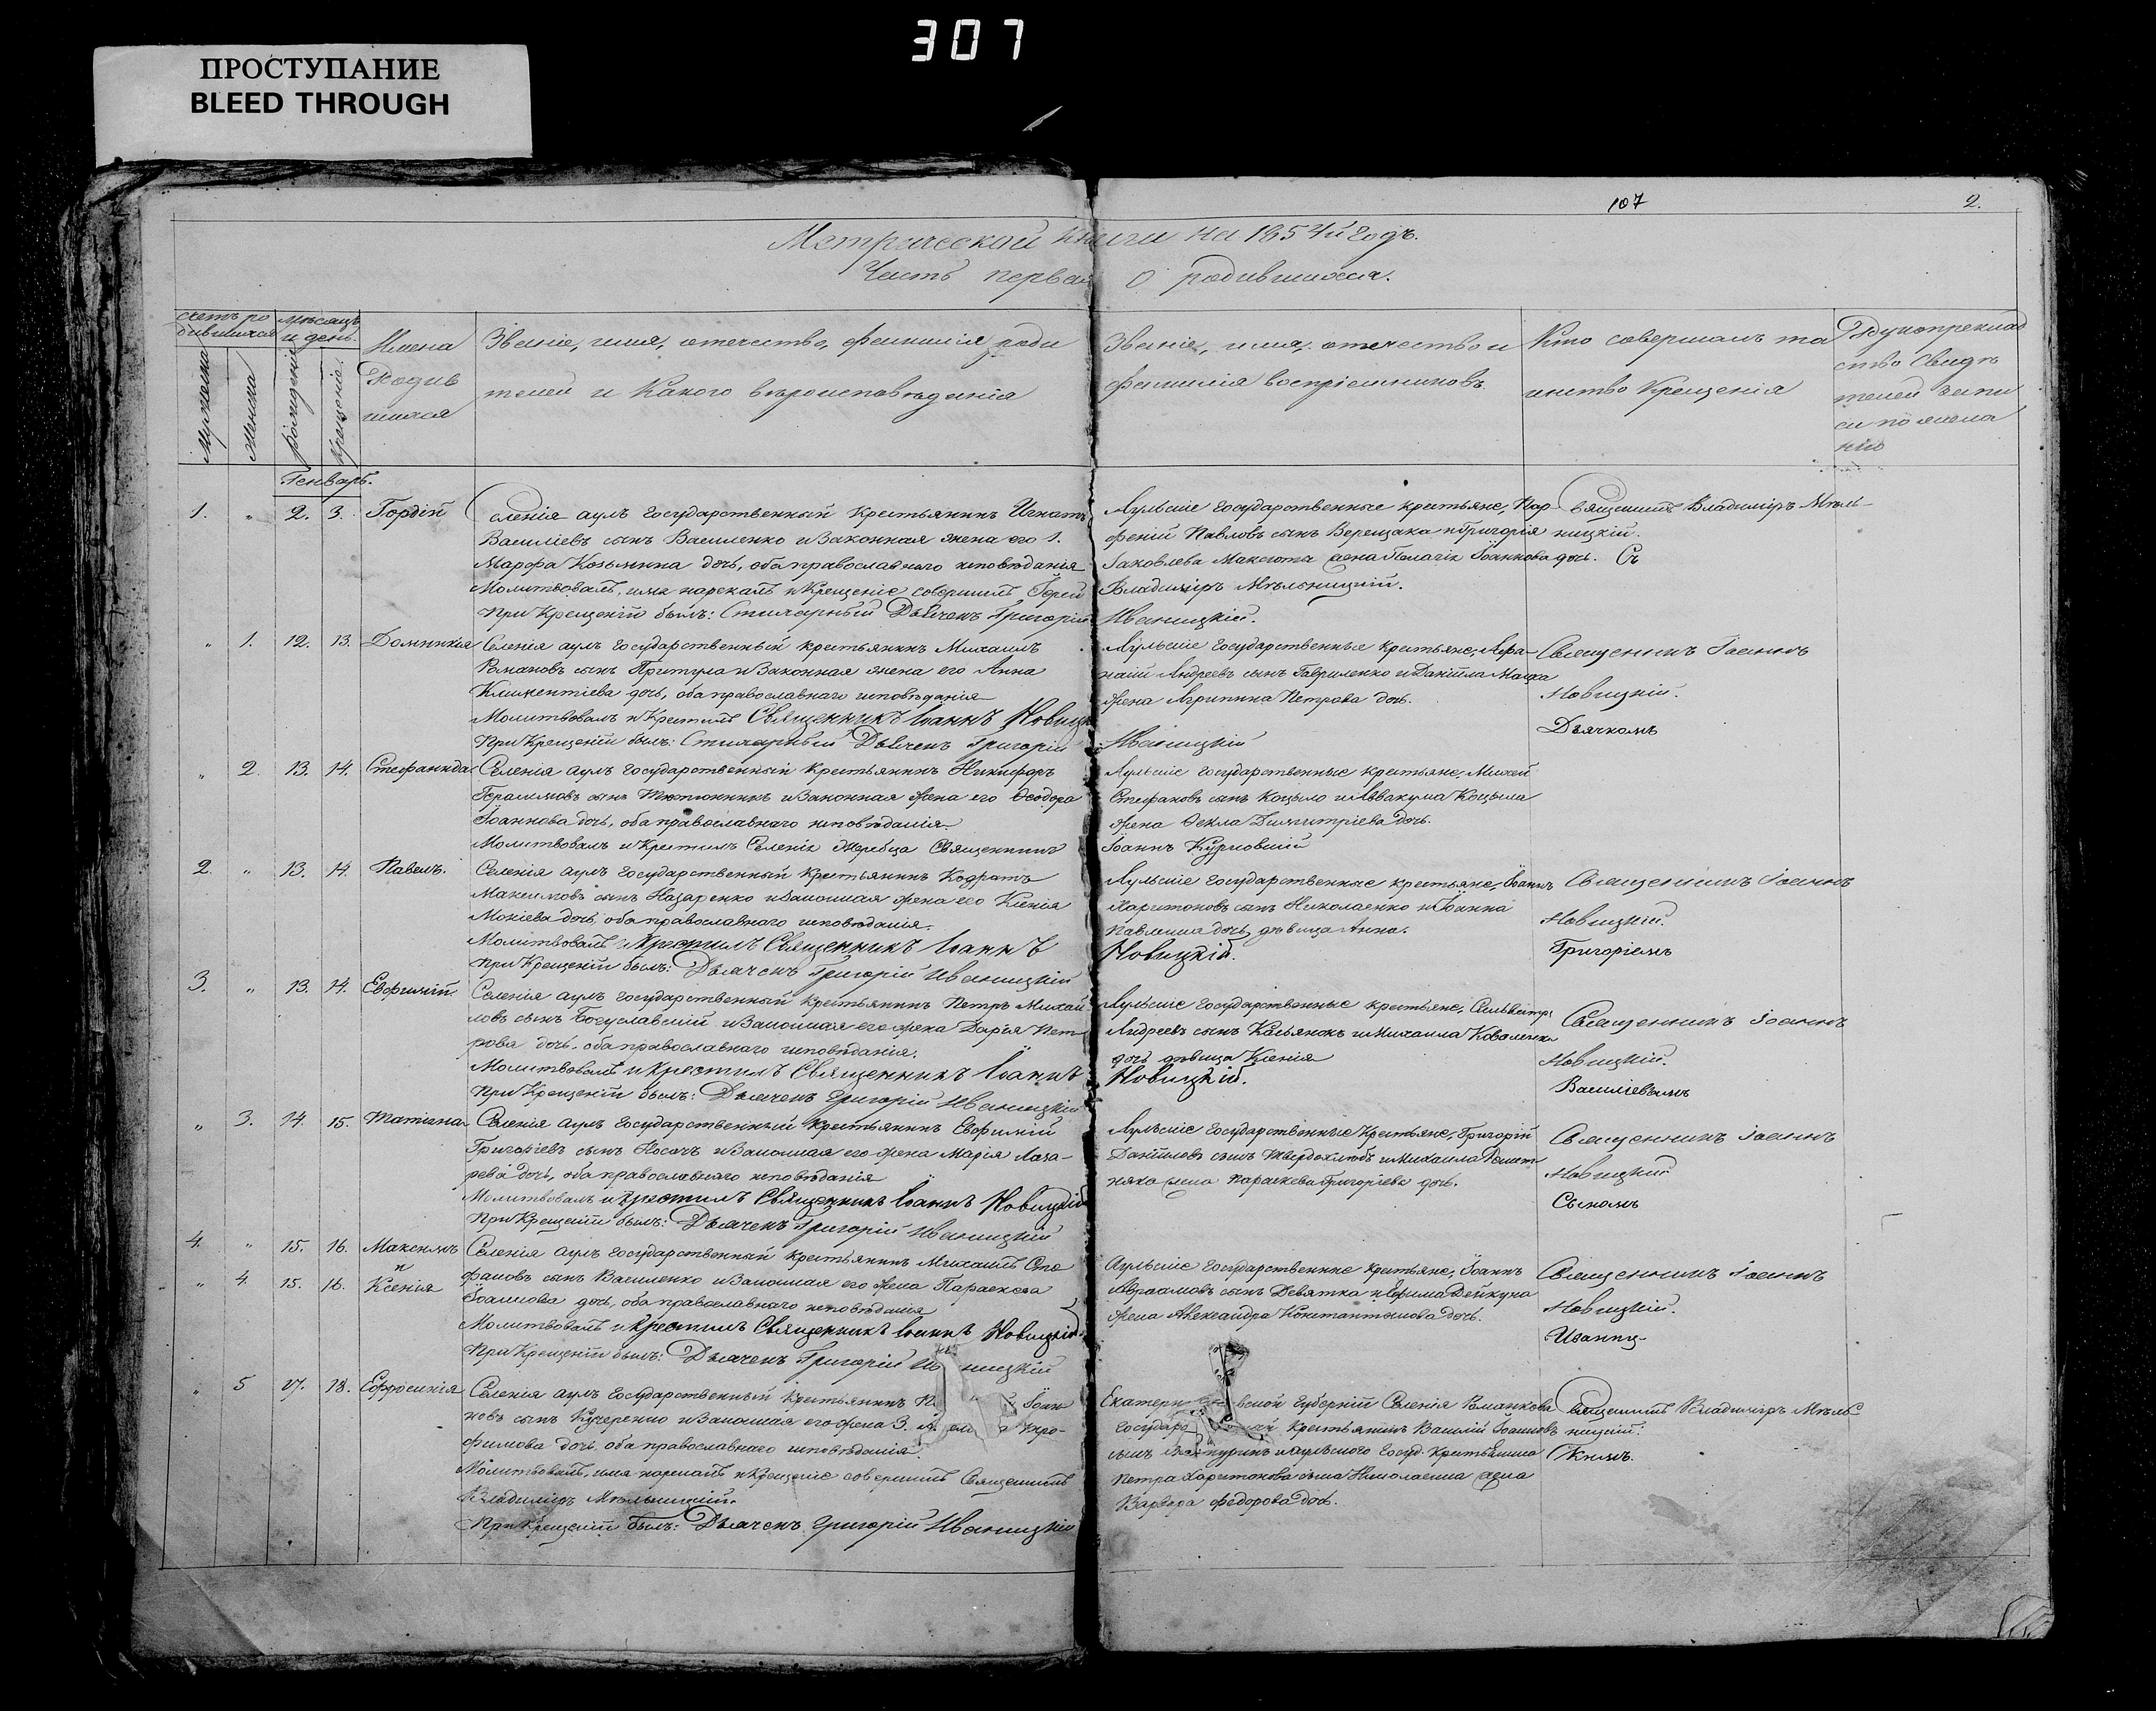 307
ПРОСТУПАНИЕ
BLEED THROUGH
107 2.
Метрической книги на 1854й годъ.
Часть первая О родившихся.
Счетъ ро
дившихся
Мужеска
Женска
Мѣсяцъ
и день.
Рожденія
Крещенія.
Имена
Родив
шихся
Званіе, имя, отчество, фамилія роди
телей и какого вѣроисповѣданія
Званіе, имя, отчество и
фамилія воспріемниковъ
Кто совершалъ та
инство Крещенія
Рукоприклад
ство свидѣ
телей запи
си по жела
нію
Генварь.
1. " 2. 3. Гордій
Селенія аулъ государственный крестьянинъ Игнатъ
Василіевъ сынъ Василенко и законная жена его 1.
Марфа Козьмина дочь, оба православнаго исповѣданія
Молитвовалъ, имя нарекалъ и Крещеніе совершилъ Іерей
При Крещеніи былъ: Стихарный Дьячекъ Григорій
Аульскіе государственные крестьяне, Пар-
феній Павловъ сынъ Верещака и Григорія
Іаковлева Максюта жена Пелагія Іоаннова дочь.
Владиміръ Мѣльницкій.
Иваницкій.
Священникъ Владиміръ Мѣль-
ницкій.
Съ
" 1. 12. 13. Домникія
Селенія аулъ государственный крестьянинъ Михаилъ
Романовъ сынъ Притула и законная жена его Анна
Климентіева дочь, оба православнаго исповѣданія
Молитвовалъ и Крестилъ Священникъ Іоаннъ Новицк
При Крещеніи былъ: Стихарный Дьячекъ Григорій
Аульскіе государственные крестьяне, Афа-
насій Андреевъ сынъ Гавриленко и Даніила
жена Агрипина Петрова дочь.
Иваницкій
Священникъ Іоаннъ
Новицкій.
Дьячкомъ
" 2. 13. 14. Стефанида
Селенія аулъ государственный крестьянинъ Никифоръ
Герасимовъ сынъ и законная жена его Ѳеодора
Іоаннова дочь, оба православнаго исповѣданія.
Молитвовалъ и Крестилъ Селенія Жеребца Священникъ
Аульскіе государственные крестьяне, Михей
Стефановъ сынъ Коцыло и Аввакума Коцыла
жена Ѳекла Димитріева дочь.
Іоаннъ Курловскій
2. " 13. 14. Павелъ.
Селенія аулъ государственный крестьянинъ Кодратъ
Максимовъ сынъ Назаренко и законная жена его Ксенія
Мокіева дочь, оба православнаго исповѣданія.
Молитвовалъ и крестилъ Священникъ Іоаннъ
При Крещеніи былъ: Дьячекъ Григорій Иваницкій
Аульскіе государственные крестьяне, Іоаннъ
Харитоновъ сынъ Николаенко и Іоанна
дочь дѣвица Анна.
Новицкій.
Священникъ Іоаннъ
Новицкій.
Григоріемъ
3. " 13. 14. Евфимій.
Селенія аулъ государственный крестьянинъ Петръ Михай
ловъ сынъ Богуславскій и законная его жена Дарія Пет-
рова дочь, оба православнаго исповѣданія.
Молитвовалъ и крестилъ Священникъ Іоаннъ
При Крещеніи былъ: Дьячекъ Григорій Иваницкій
Аульскіе государственные крестьяне, Сильвестръ
Андреевъ сынъ Касьянокъ и Михаила Коваленка
дочь дѣвица Ксенія
Новицкій.
Священникъ Іоаннъ
Новицкій.
Василіевымъ
" 3. 14. 15. Татіана
Селенія аулъ государственный крестьянинъ Евфимій
Григоріевъ сынъ Носачъ и законная его жена Марія Лаза-
рева дочь, оба православнаго исповѣданія
Молитвовалъ и крестилъ Священникъ Іоаннъ Новицкій
При Крещеніи былъ: Дьячекъ Григорій Иваницкій
Аульскіе государственные крестьяне, Григорій
Даніиловъ сынъ Твердохлѣбъ и Михаила Решет-
няка жена Параскева Григоріева дочь.
Священникъ Іоаннъ
Новицкій
Сыномъ
4. " 15. 16. Максимъ
и
" 4. 15. 16. Ксенія
Селенія аулъ государственный крестьянинъ Михаилъ Сте
фановъ сынъ Василенко и законная его жена Параскева
Іоаннова дочь, оба православнаго исповѣданія
Молитвовалъ и крестилъ Священникъ Іоаннъ Новицкій
При Крещеніи былъ: Дьячекъ Григорій И ницкій
Аульскіе государственные крестьяне, Іоаннъ
Авраамовъ сынъ Девятка и Ефима Дейкуна
жена Александра Константинова дочь.
Священникъ Іоаннъ
Новицкій.
Иваниц-
" 5 17. 18. Ефросинія
Селенія аулъ государственный крестьянинъ Іоан
новъ сынъ Кучеренко и законная его жена
фимова дочь, оба православнаго исповѣданія.
Молитвовалъ, имя нарекалъ и Крещеніе совершилъ Священникъ
Владиміръ Мѣльницкій.
При Крещеніи былъ: Дьячекъ Григорій Иваницкій
Екатерин вской Губерніи Селенія Романкова
государс й крестьянинъ Василій Іоанновъ
сынъ и аульского госуд. крестьянина
Петра Харитонова сына Николаенка жена
Варвара Федорова дочь.
Священникъ Владиміръ Мѣль-
ницкій.
Кимъ.